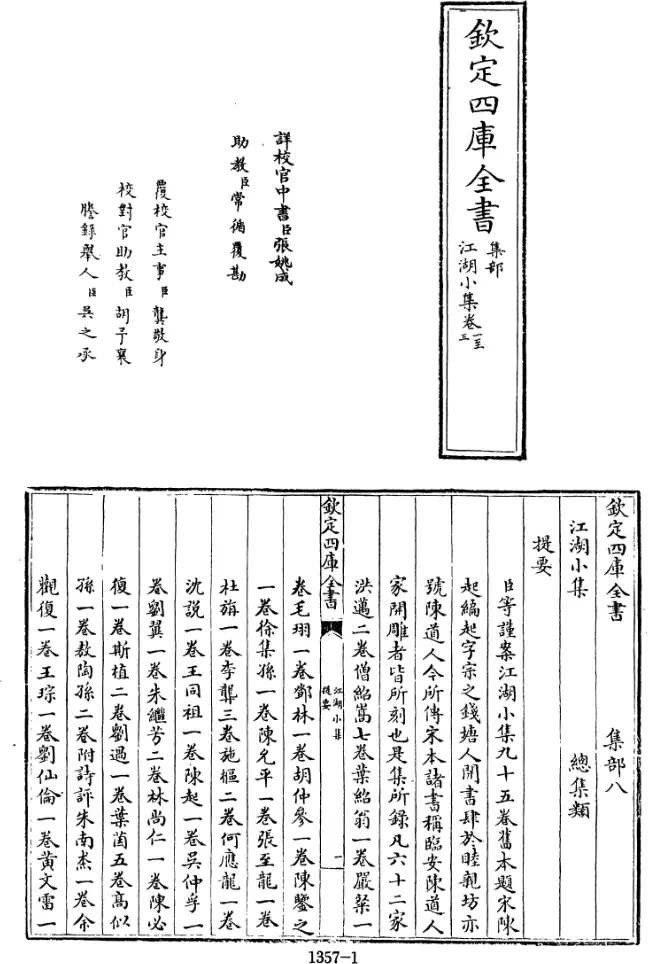 欽定四庫全書
集部
江湖小集卷一至三
詳校官中書臣張姚成
助教臣常循覆勘
覆校官主事臣龔敬身
校對官助教臣胡予襄
謄錄舉人臣吳之承
欽定四庫全書
集部八
江湖小集
總集類
提要
臣等謹案江湖小集九十五卷舊本題宋陳
起編起字宗之錢塘人開書肆於睦親坊亦
號陳道人今所傳宋本諸書稱臨安陳道人
家開雕者皆所刻也是集所錄凡六十二家
洪邁二卷僧紹嵩七卷葉紹翁一卷嚴粲一
欽定四庫全書
江湖小集
提要
一
卷毛珝一卷鄧林一卷胡仲參一卷陳鑒之
一卷徐集孫一卷陳允平一卷張至龍一卷
杜旃一卷李龏三卷施樞二卷何應龍一卷
沈說一卷王同祖一卷陳起一卷吳仲孚一
卷劉翼一卷朱繼芳二卷林尚仁一卷陳必
復一卷斯植二卷劉過一卷葉茵五卷高似
孫一卷敖陶孫二卷附詩評朱南杰一卷余
觀復一卷王琮一卷劉仙倫一卷黃文雷一
1357-1